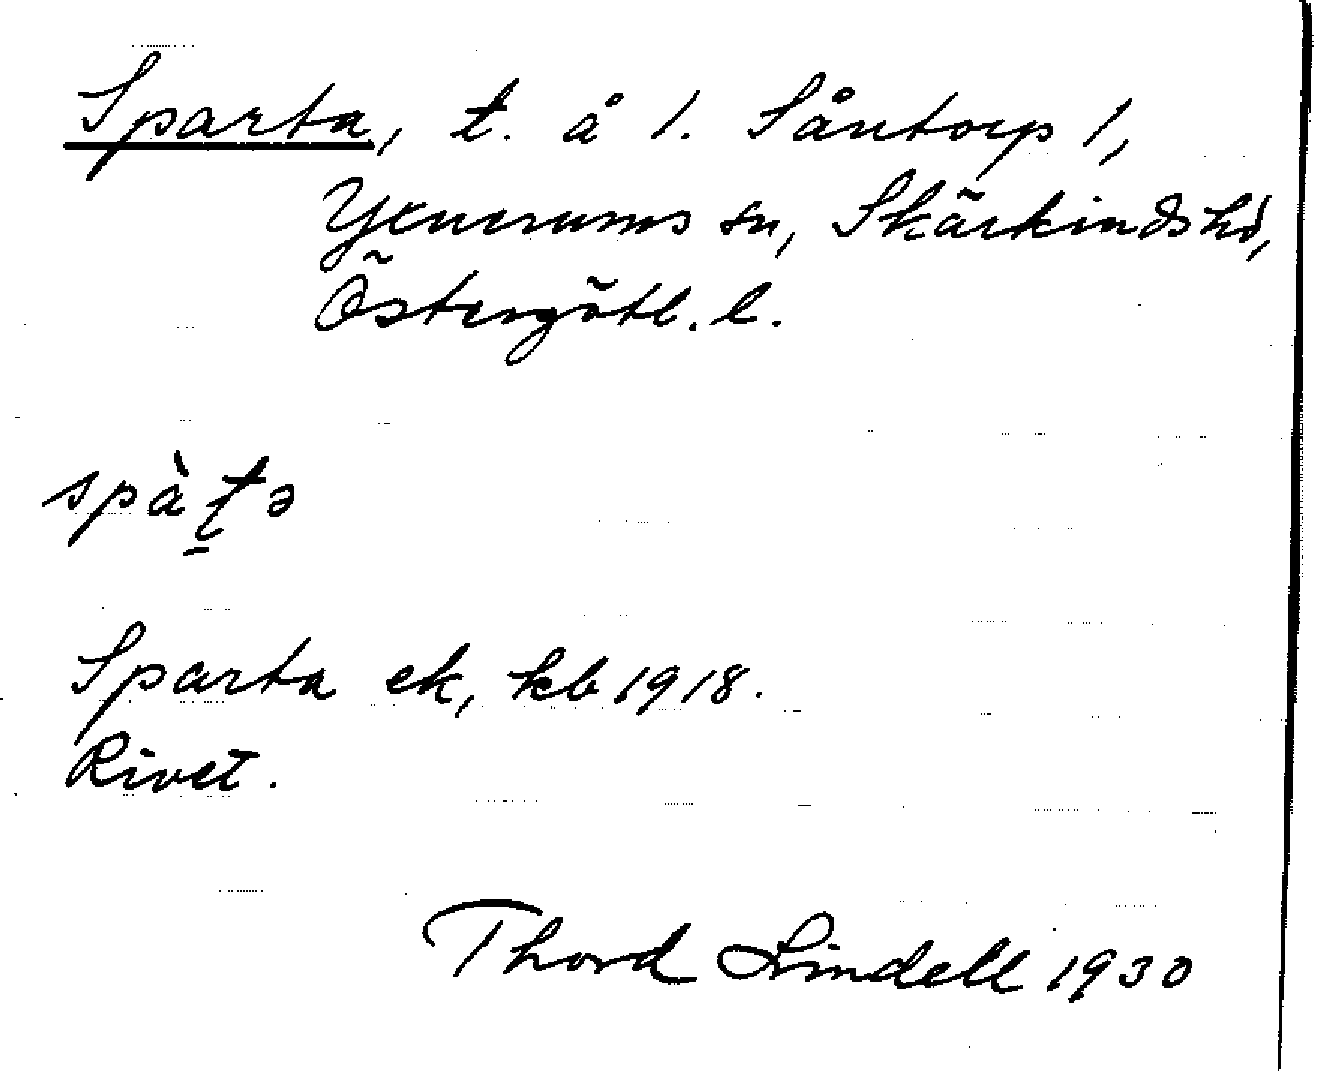 Sparta, t. å 1. Såntorp 1,
Yxnerums sn, Skärkinds hd,
Östergötl. l.
spàʈə
Sparta ek, kb 1918.
Rivet.
Thord Lindell 1930